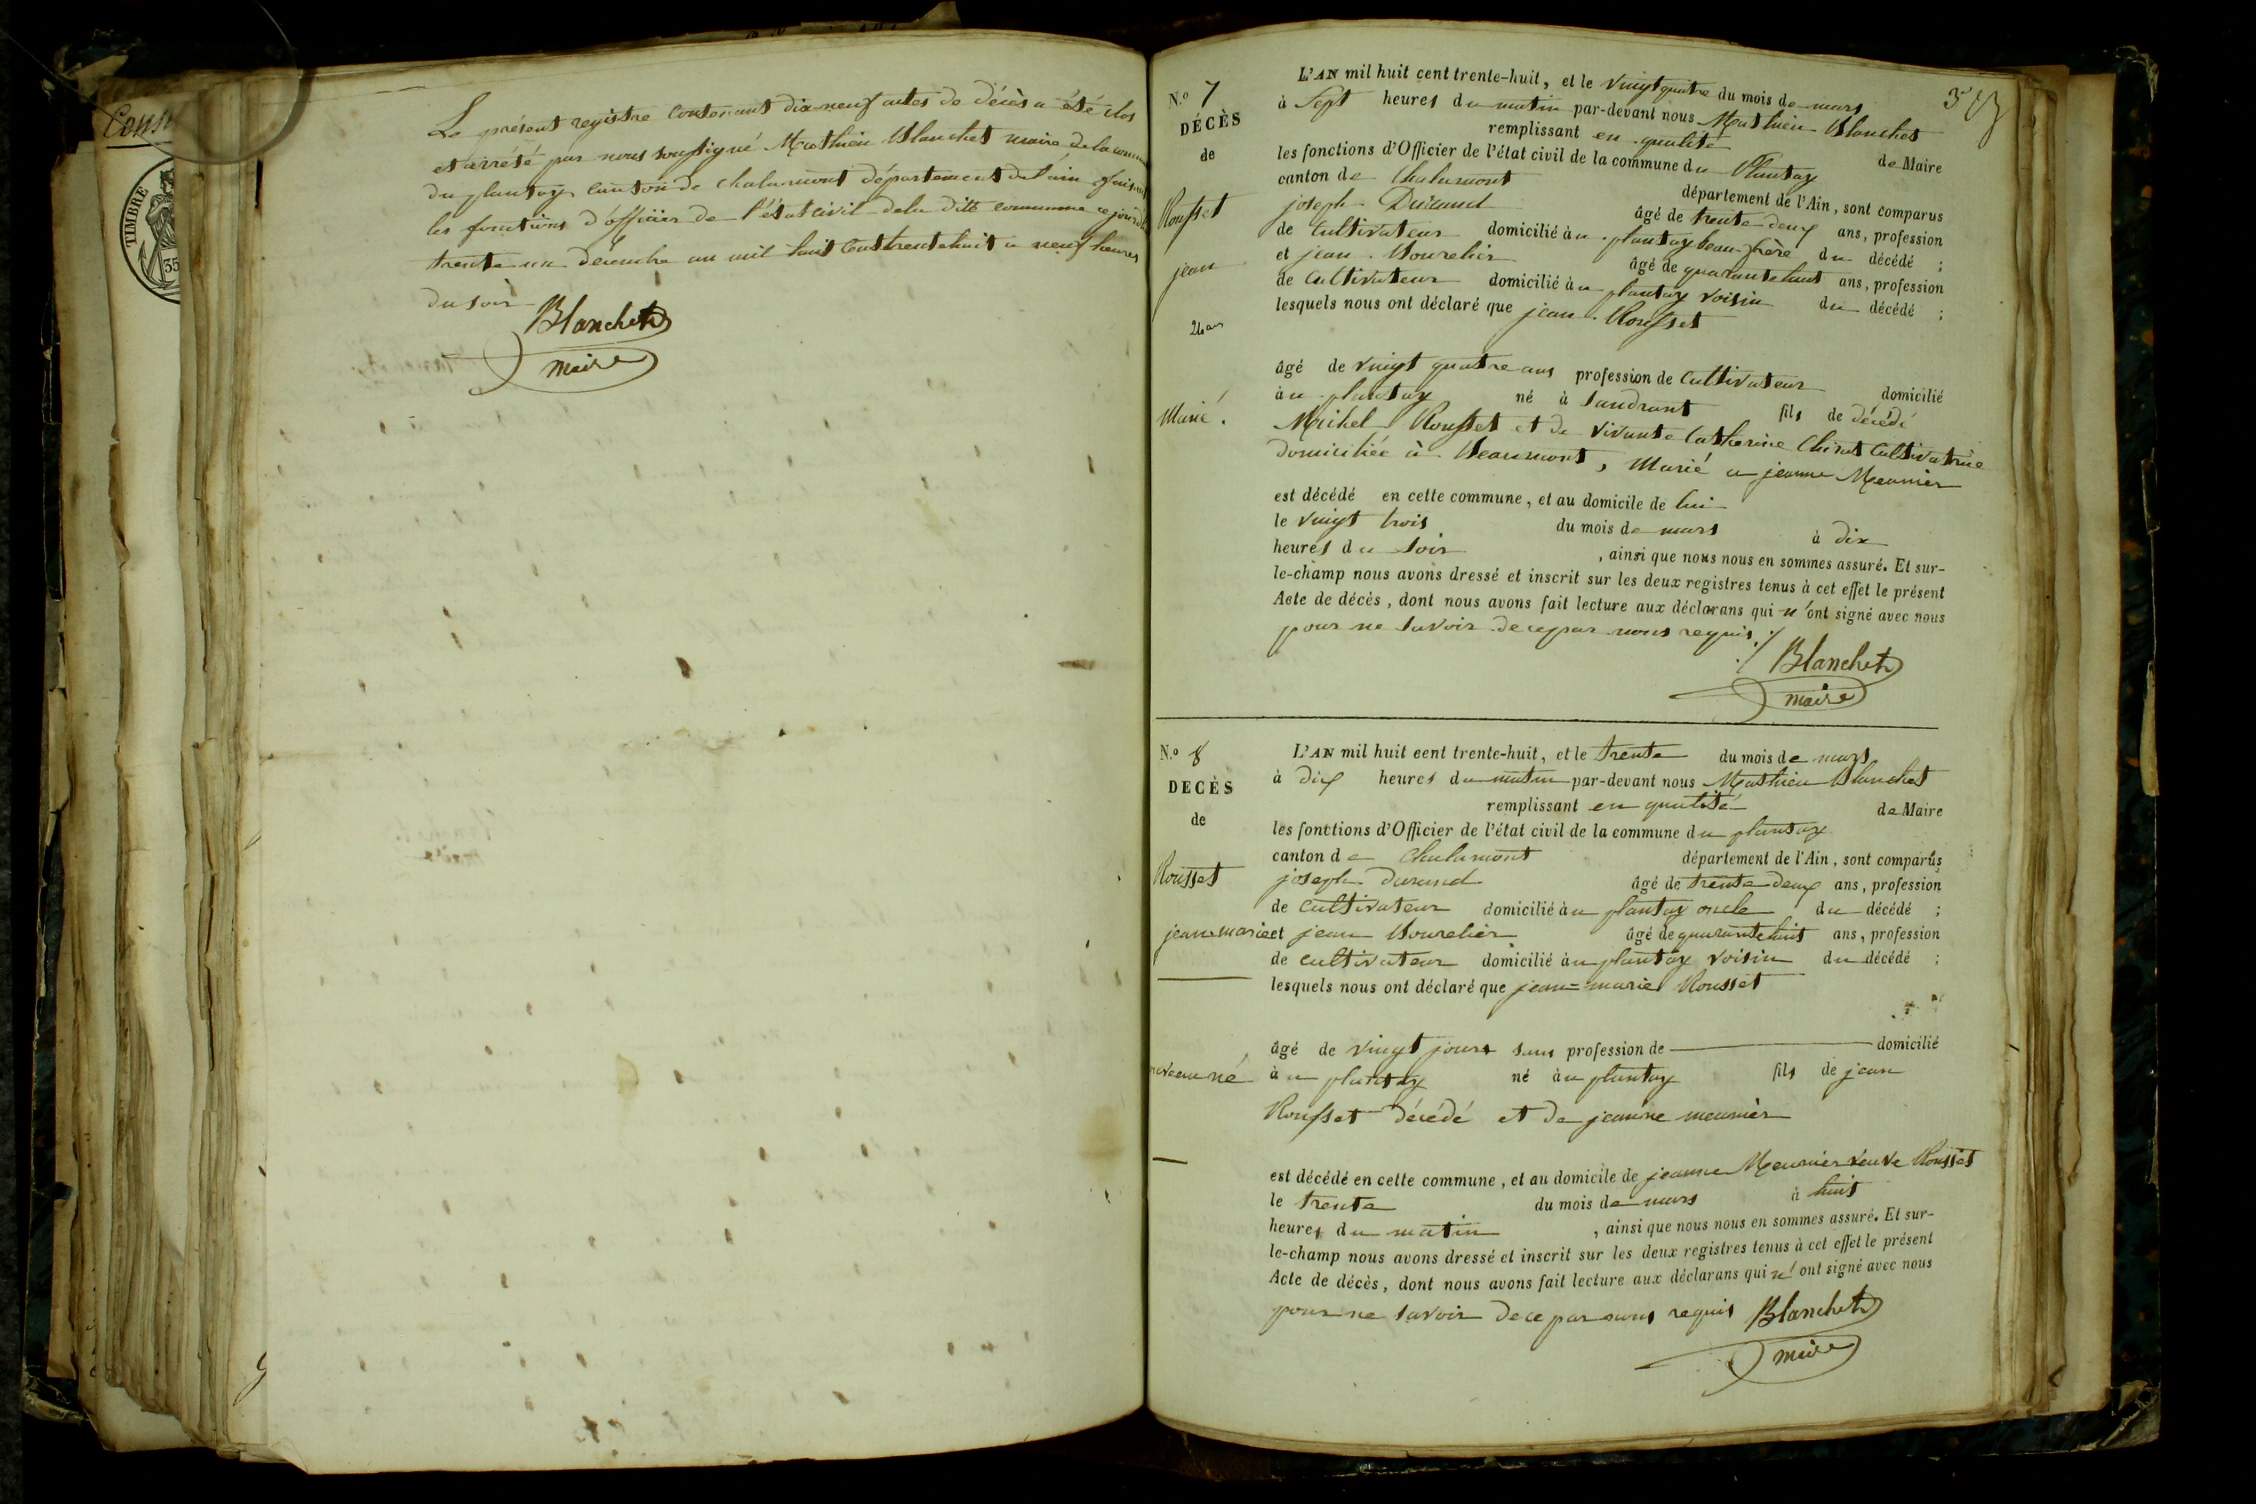 Cons
TIMBRE
35
Le présent registre contenant dix neuf actes de décès a été clos
et arrêté par nous soussigné Mathieu Blanchet maire de la commune
du plantay canton de chalamont département de l'ain faisant
les fonctions d'officier de l'état civil de la dite commune ce jourd'hui
trente un décembre an mil huit cent trente huit a neuf heures
du soir
Blanchet
maire
3
N.º 7
DÉCÈS
de
Rousset
jean
24 ans
Marié.
L'AN mil huit cent trente-huit, et le vingt quatre du mois de mars
à Sept heures du matin par-devant nous Mathieu Blanchet
remplissant en qualité de Maire
les fonctions d'Officier de l'état civil de la commune du Plantay
canton de Chalamont département de l'Ain, sont comparus
joseph Durand âgé de trente deux ans, profession
de Cultivateur domicilié au plantay beau-frère du décédé ;
et jean Bourelier âgé de quarante huit ans, profession
de Cultivateur domicilié au plantay voisin du décédé ;
lesquels nous ont déclaré que jean Rousset
âgé de vingt quatre ans profession de Cultivateur domicilié
au plantay né à Sandrant fils de décédé
Michel Rousset et de vivante Catherine Chinet Cultivatrice
domiciliée à Beaumont, Marié a jeanne Meunier
est décédé en cette commune, et au domicile de lui
le vingt trois du mois de mars à dix
heures du soir , ainsi que nous nous en sommes assuré. Et sur-
le-champ nous avons dressé et inscrit sur les deux registres tenus à cet effet le présent
Acte de décès, dont nous avons fait lecture aux déclarans qui n'ont signé avec nous
pour ne savoir de ce par nous requis ./.
Blanchet
maire
N.º 8
DECÈS
de
Rousset
jean-marie
nouveau né
L'AN mil huit cent trente-huit, et le trente du mois de mars
à dix heures du matin par-devant nous Mathieu Blanchet
remplissant en qualité de Maire
les fonctions d'Officier de l'état civil de la commune du plantay
canton de Chalamont département de l'Ain, sont comparus
joseph Durand âgé de trente deux ans, profession
de cultivateur domicilié au plantay oncle du décédé ;
et jean Bourelier âgé de quarante huit ans, profession
de cultivateur domicilié au plantay voisin du décédé ;
lesquels nous ont déclaré que jean=marie Rousset
âgé de vingt jours sans profession de domicilié
au plantay né au plantay fils de jean
Rousset décédé et de jeanne meunier
est décédé en cette commune, et au domicile de jeanne Meunier veuve Rousset
le trente du mois de mars à huit
heures du matin , ainsi que nous nous en sommes assuré. Et sur-
le-champ nous avons dressé et inscrit sur les deux registres tenus à cet effet le présent
Acte de décès, dont nous avons fait lecture aux déclarans qui n'ont signé avec nous
pour ne savoir de ce par nous requis Blanchet
maire